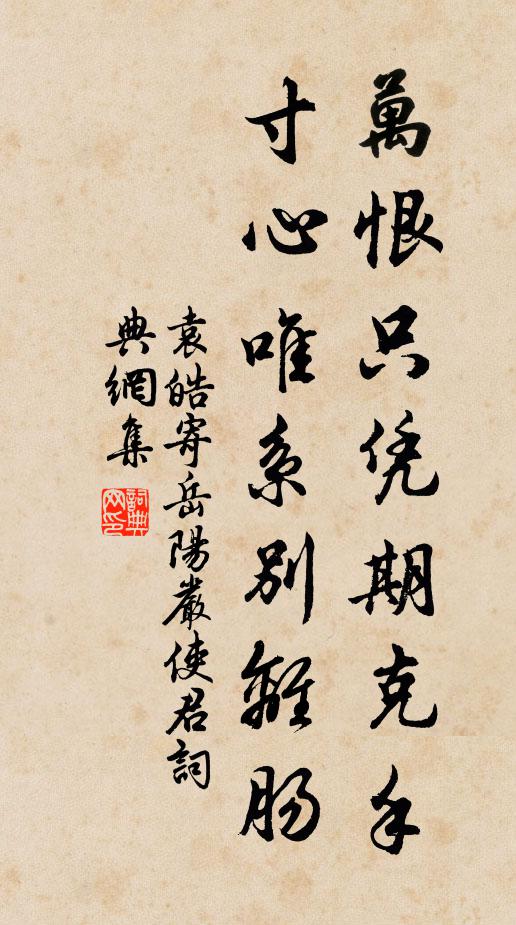 萬恨只凭期克手
寸心唯系別離肠
袁皓寄岳陽嚴使君詞
典網集
詞典网印